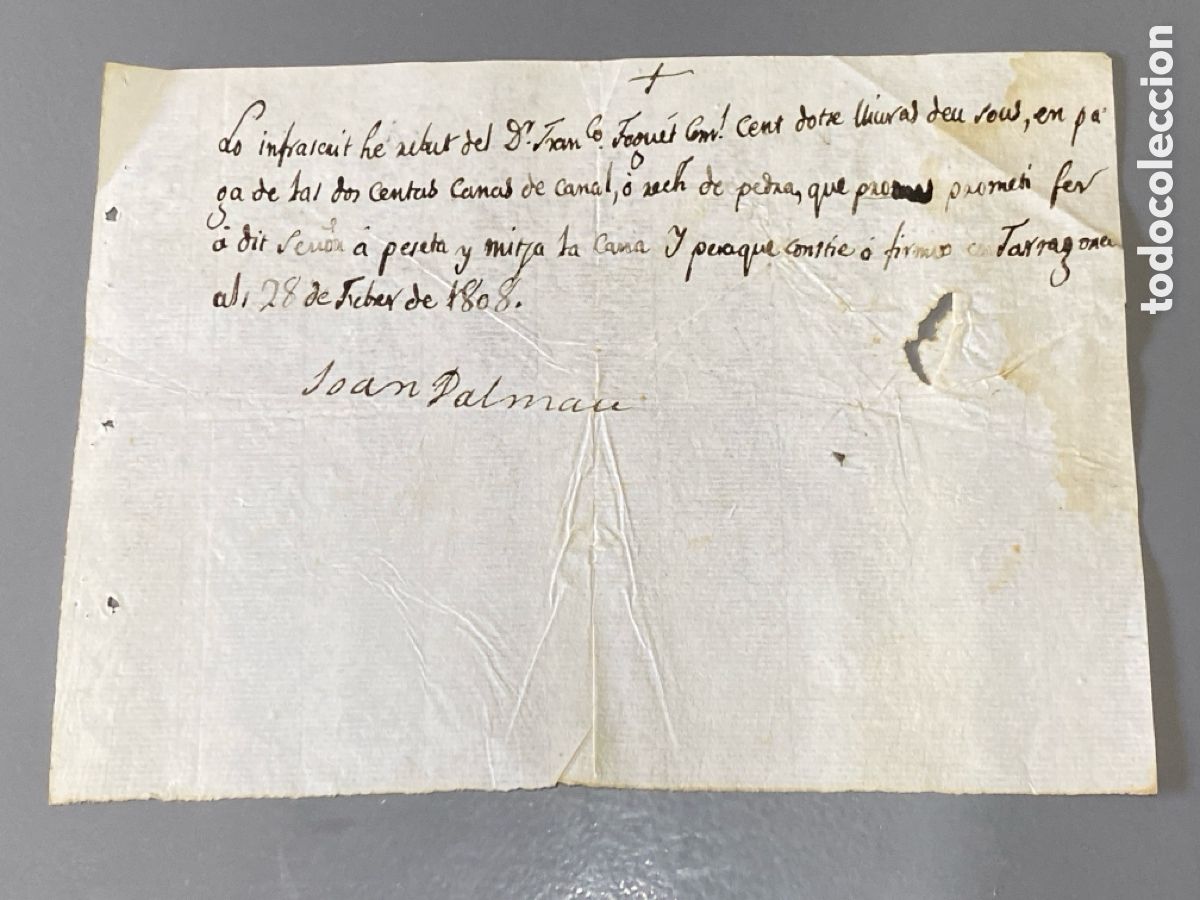 Lo infrascrit hé rebut del Dr. Franco. Foguét Coml. Cent dotze lliuras deu sous, en pa-
ga de las dos centas Canas de canal, ó rech de pedra, que prometi fer
á dit Señor á peseta y mitja la Cana Y peraque conste o firmo en Tarragona
als 28 de Feber de 1808.
Joan Dalmau
todocoleccion